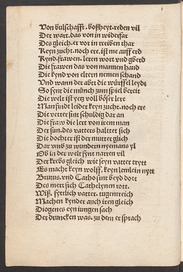 Von bulschafft, boßheyt reden vil
Der wart, das von in widerfar
Des gleich, er vor in treiben thar
Keyn zucht, noch ere, ist me auff erd
Kynd frawen, leren wort vnd gberd
Die frawen das von mannen hand
Die kynd von eltern nemen schand
Vnd wann der abt die würffel leydt
So synt die münch zum spiel bereit
Die welt ist yetz voll böser lere
Man findt leider keyn zucht, noch ere
Die vetter sint schuldig dar an
Die fraw die lert von irem man
Der sun, des vatters haltet sich
Die dochter ist der mutter glich
Dar vmb zu wundern nyemans yl
Ob in der welt synt narren vil
Der krebs gleich wie seyn vatter trytt
Es macht keyn wolff, keyn lemlein nyt
Brutus, vnd Catho sint beyd dott
Des mert sich Cathelynen rott.
Wiß, syttlich vatter, tugentreich
Machen kynder auch in gleich
Diogenes eyn iungen sach
Der druncken was, zu dem er sprach